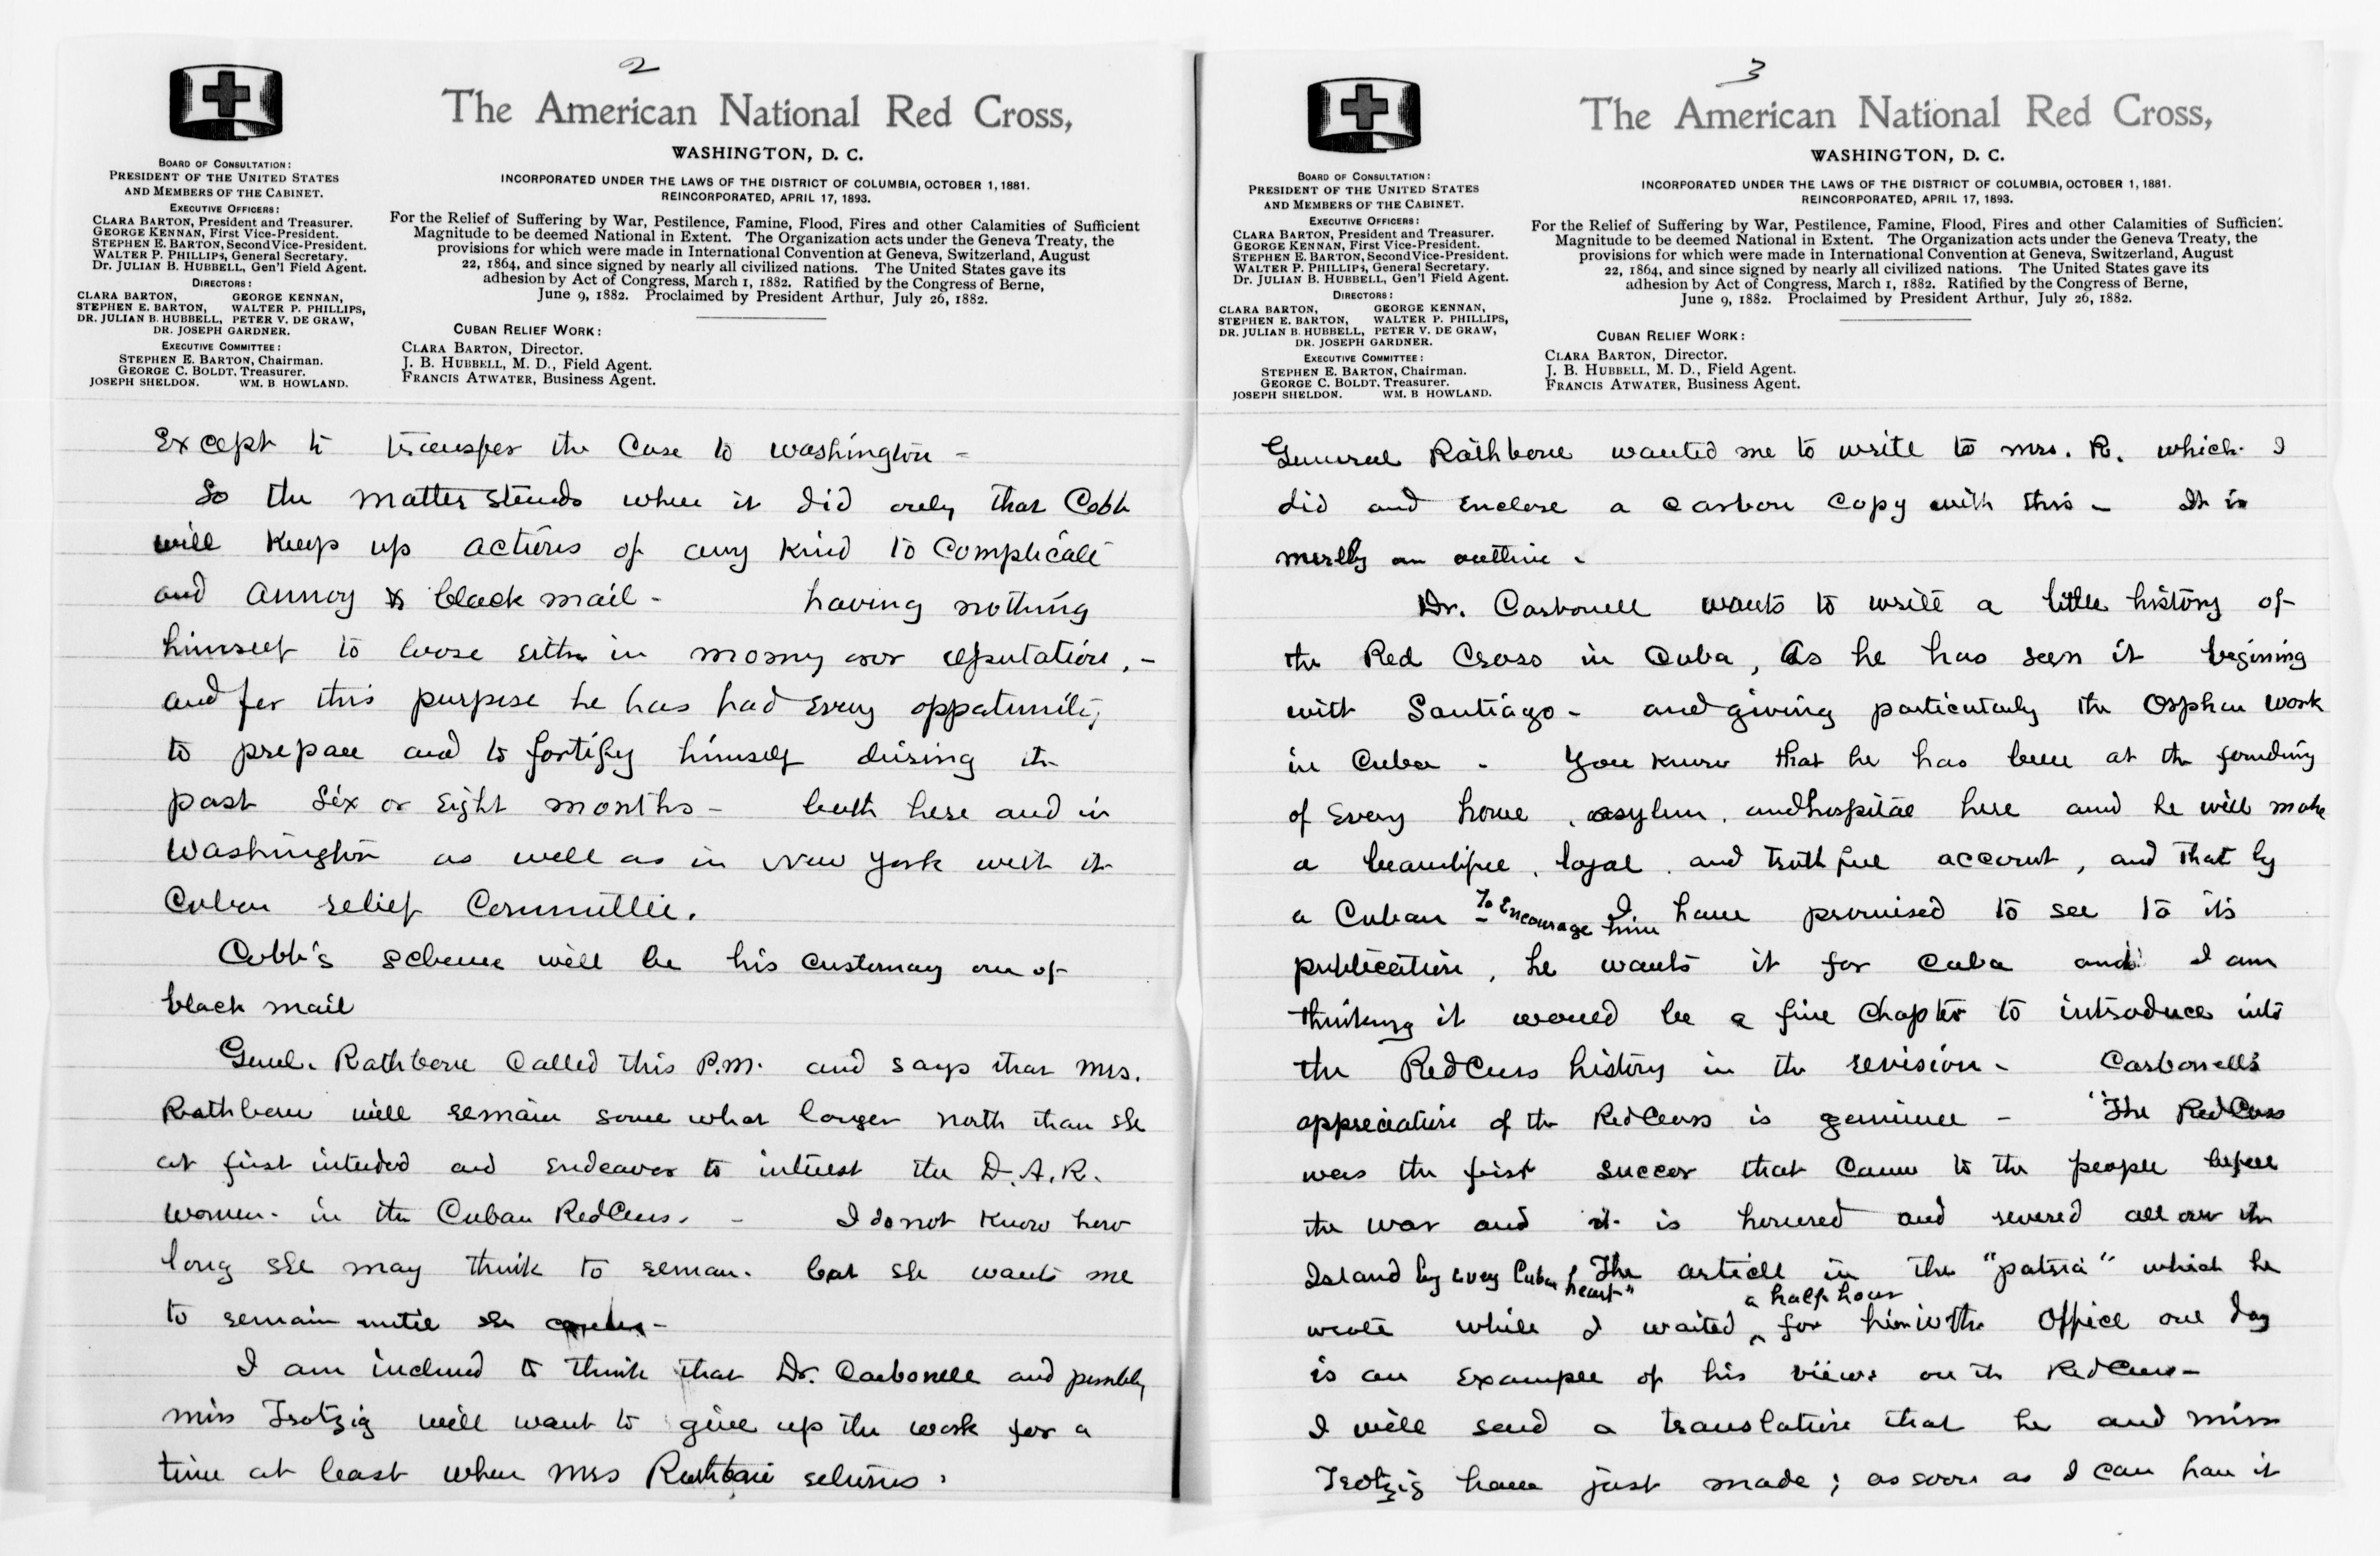 2
The American National Red Cross,
WASHINGTON, D. C.
INCORPORATED UNDER THE LAWS OF THE DISTRICT OF COLUMBIA, OCTOBER 1, 1881.
REINCORPORATED, APRIL 17, 1893.
For the Relief of Suffering by War, Pestilence, Famine, Flood, Fires and other Calamities of Sufficient
Magnitude to be deemed National in Extent. The Organization acts under the Geneva Treaty, the
provisions for which were made in International Convention at Geneva, Switzerland, August
22, 1864, and since signed by nearly all civilized nations. The United States gave its
adhesion by Act of Congress, March 1, 1882. Ratified by the Congress of Berne,
June 9, 1882. Proclaimed by President Arthur, July 26, 1882.
BOARD OF CONSULTATION:
PRESIDENT OF THE UNITED STATES
AND MEMBERS OF THE CABINET.
EXECUTIVE OFFICERS:
CLARA BARTON, President and Treasurer.
GEORGE KENNAN, First Vice-President.
STEPHEN E. BARTON, Second Vice-President.
WALTER P. PHILLIPS, General Secretary.
Dr. JULIAN B. HUBBELL, Gen'l Field Agent.
DIRECTORS:
CLARA BARTON, GEORGE KENNAN,
STEPHEN E. BARTON, WALTER P. PHILLIPS,
DR. JULIAN B. HUBBELL, PETER V. DE GRAW,
DR. JOSEPH GARDNER.
EXECUTIVE COMMITTEE:
STEPHEN E. BARTON, Chairman.
GEORGE C. BOLDT, Treasurer.
JOSEPH SHELDON. WM. B. HOWLAND.
CUBAN RELIEF WORK:
CLARA BARTON, Director.
J. B. HUBBELL, M. D., Field Agent.
FRANCIS ATWATER, Business Agent.
Except to transfer the Case to Washington -
So the matter stands where it did only that Cobb
will Keep up actions of any Kind to Complicate
and annoy & black mail - having nothing
himself to loose either in money nor reputation, -
and for this purpose he has had Every oppatunity
to prepare and to fortify himself during the
past Six or Eight months - both here and in
Washington as well as in New York with the
Cuban relief Committee.
Cobb's scheme will be his customary one of
black mail
Genl. Rathbone Called this P.M. and says that Mrs.
Rathbone will remain some what longer north than she
at first intended and Endeavor to interest the D.A.R.
women. in the Cuban Red Cross. - I do not Know how
long she may think to reman. but she wants me
to remain until she
I am inclined to think that Dr. Carbonell and possibly
Miss Trotzig will want to give up the work for a
time at least when Mrs Rathbone returns.
3
The American National Red Cross,
WASHINGTON, D. C.
INCORPORATED UNDER THE LAWS OF THE DISTRICT OF COLUMBIA, OCTOBER 1, 1881.
REINCORPORATED, APRIL 17, 1893.
For the Relief of Suffering by War, Pestilence, Famine, Flood, Fires and other Calamities of Sufficient
Magnitude to be deemed National in Extent. The Organization acts under the Geneva Treaty, the
provisions for which were made in International Convention at Geneva, Switzerland, August
22, 1864, and since signed by nearly all civilized nations. The United States gave its
adhesion by Act of Congress, March 1, 1882. Ratified by the Congress of Berne,
June 9, 1882. Proclaimed by President Arthur, July 26, 1882.
BOARD OF CONSULTATION:
PRESIDENT OF THE UNITED STATES
AND MEMBERS OF THE CABINET.
EXECUTIVE OFFICERS:
CLARA BARTON, President and Treasurer.
GEORGE KENNAN, First Vice-President.
STEPHEN E. BARTON, Second Vice-President.
WALTER P. PHILLIPS, General Secretary.
Dr. JULIAN B. HUBBELL, Gen'l Field Agent.
DIRECTORS:
CLARA BARTON, GEORGE KENNAN,
STEPHEN E. BARTON, WALTER P. PHILLIPS,
DR. JULIAN B. HUBBELL, PETER V. DE GRAW,
DR. JOSEPH GARDNER.
EXECUTIVE COMMITTEE:
STEPHEN E. BARTON, Chairman.
GEORGE C. BOLDT, Treasurer.
JOSEPH SHELDON. WM. B HOWLAND.
CUBAN RELIEF WORK:
CLARA BARTON, Director.
J. B. HUBBELL, M. D., Field Agent.
FRANCIS ATWATER, Business Agent.
General Rathbone wanted me to write to Mrs. R. which I
did and Enclose a Carbon Copy with this - It is
merely an outline.
Dr. Carbonell wants to write a little history of
the Red Cross in Cuba, As he has seen it begining
with Santiago - and giving particularly the Orphan Work
in Cuba - You know that he has been at the founding
of Every home, asylum, and hospital here and he will make
a beautiful, loyal, and truthful account, and that by
a Cuban - To Encourage him I have promised to see to its
publication, he wants it for Cuba and I am
thinking it would be a fine Chapter to introduce into
the Red Cross history in the revision - Carbonell's
appreciation of the Red Cross is genuine - "The Red Cross
was the first succor that Came to the people before
the war and it is honored and revered all over the
Island by Every Cuban heart" The article in the "patria" which he
wrote while I waited a half hour for him in the Office one day
is an Example of his views on the Red Cross -
I will send a translation that he and Miss
Trotzig have just made; as soon as I can have it